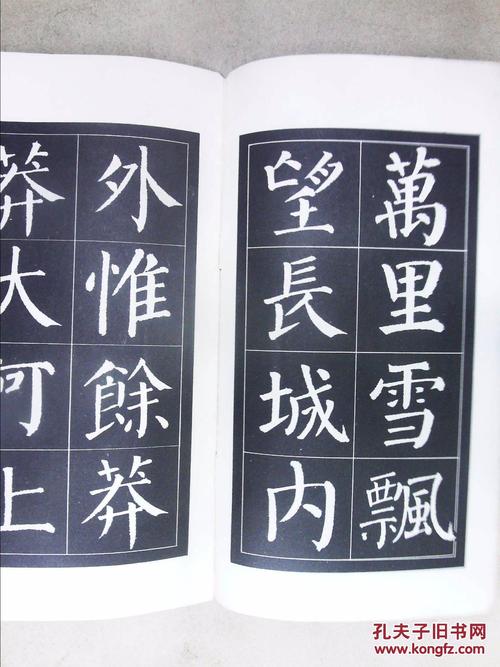 萬里雪飄
望長城內
外惟餘莽
莽大河上
孔夫子旧书网
www.kongfz.com